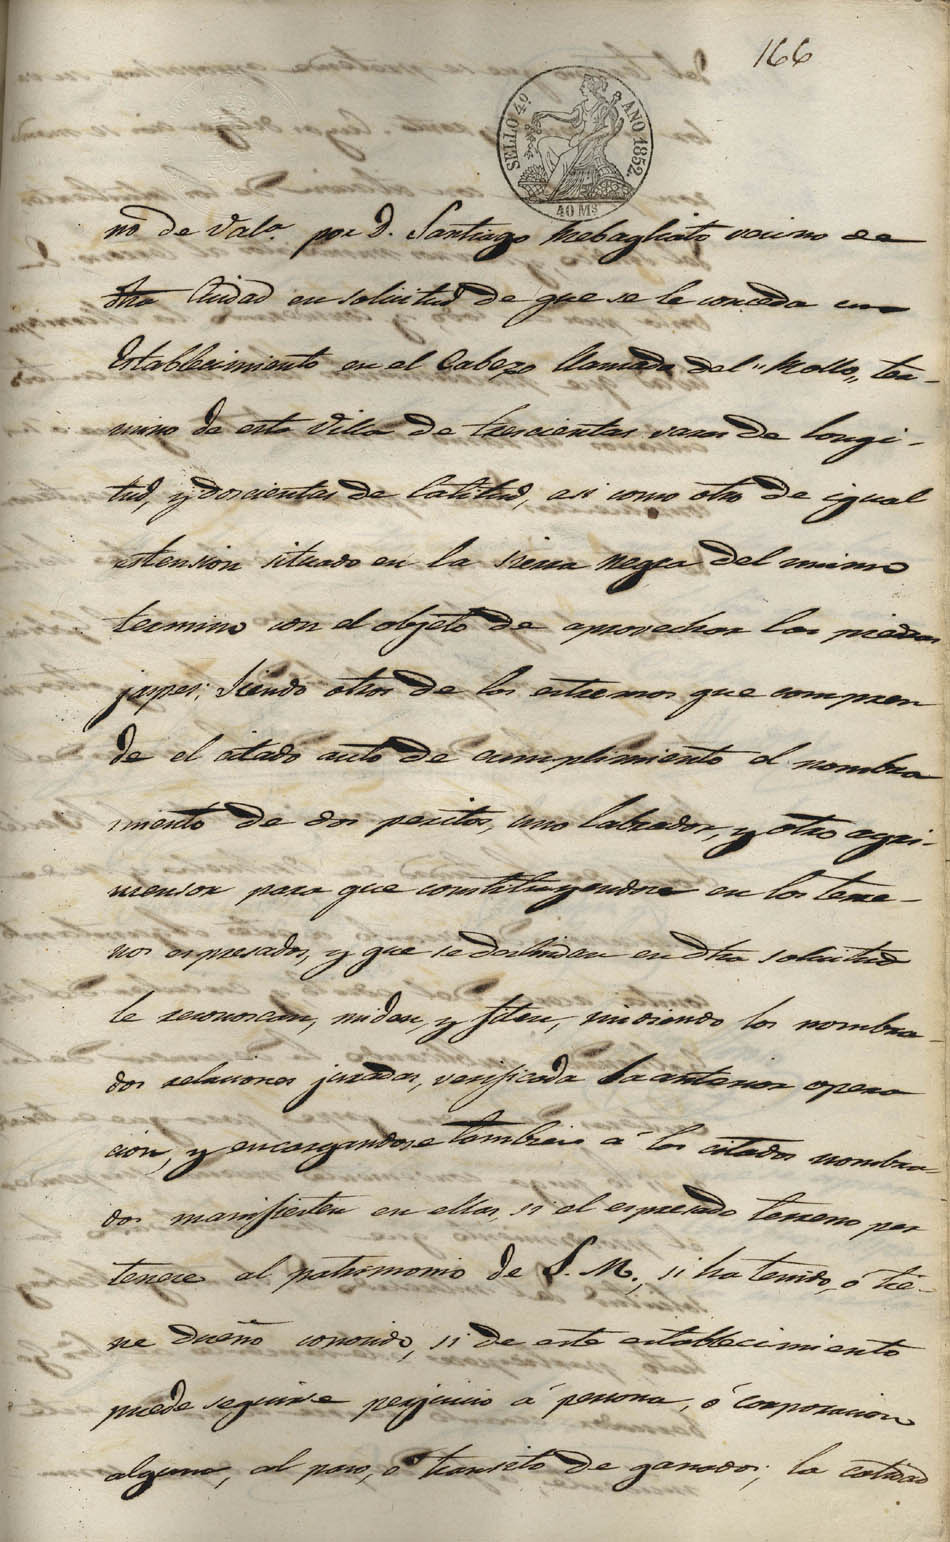 166
SELLO 4º AÑO 1852.
40 Ms
no de Vala por D. Santiago Rebagliato vecino de
dha Ciudad en solicitud de que se le conceda un
Establecimiento en el Cabezo llamado del "Mollo" ter-
mino de esta Villa de trescientas varas de longi-
tud, y doscientas de latitud, asi como otro de igual
estension situado en la sierra negra del mismo
termino con el objeto de aprovechar las piedras
jaspes; Siendo otros de los estremos que compren
de el citado auto de cumplimiento el nombra
miento de dos peritos, uno labrador, y otro agri-
mensor para que constituyendose en los terre-
nos espresados, y que se deslinden en dha solicitud
le reconoscan, midan, y fiten, rindiendo los nombra-
dos relaciones juradas, verificada la anterior opera
cion, y encargandose tambien á los citados nombra-
dos manifiesten en ellas, si el espresado terreno per
tenece al patrimonio de S. M., si ha tenido, ó tie-
ne dueño conocido, si de este establecimiento
puede seguirse perjuicio á persona, ó corporacion
alguna, al paso, ó transito de ganados; la calidad